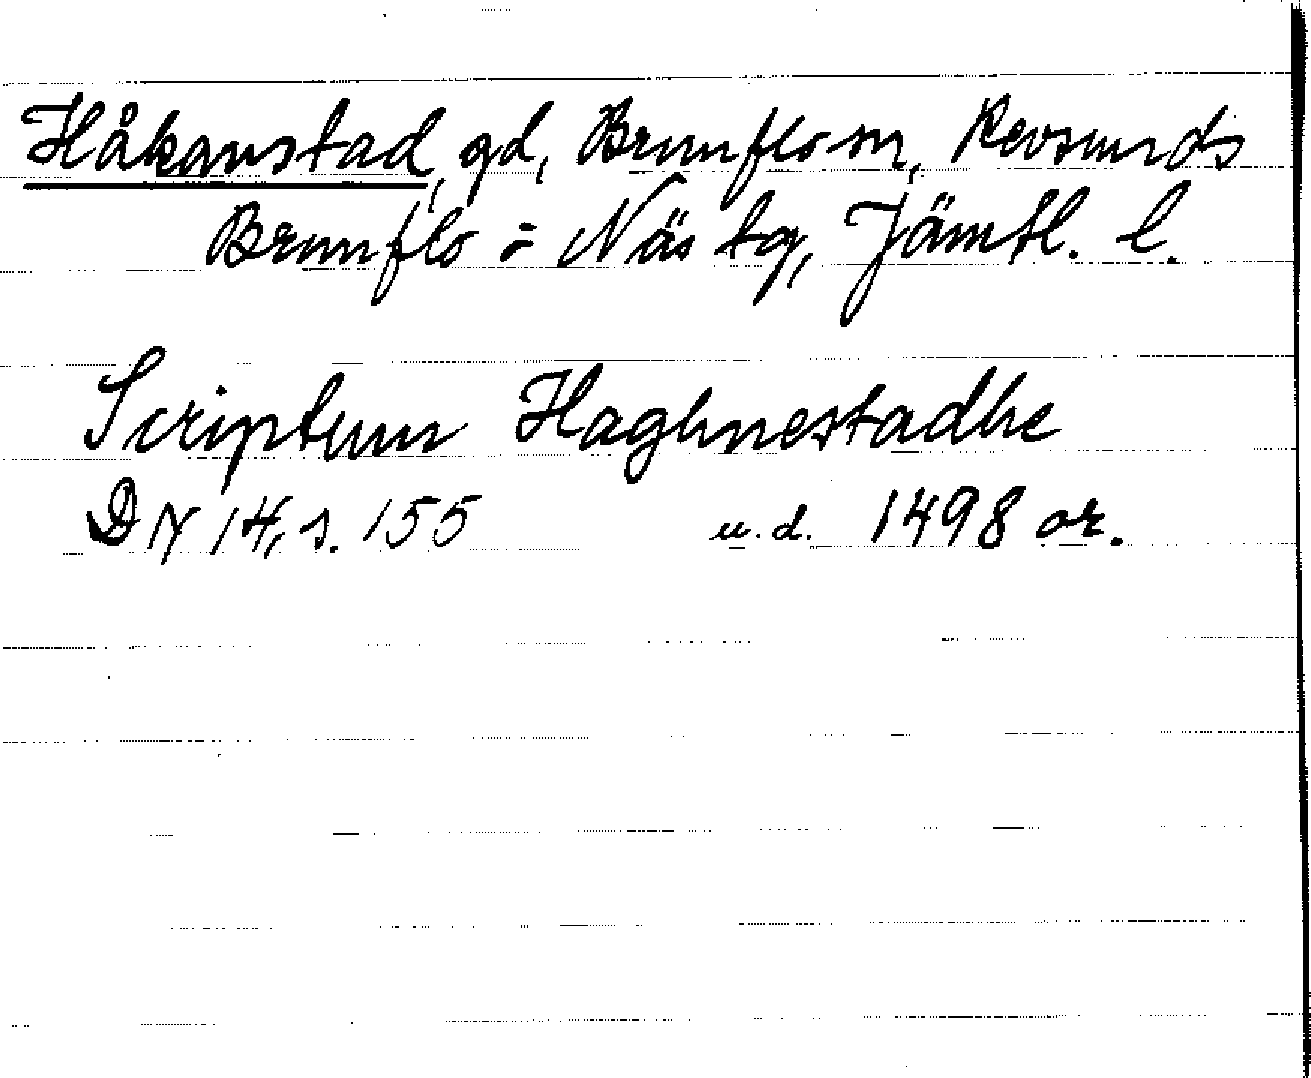 Håkanstad, gd, Brunflo sn, Revsunds
Brunflo o Näs tg, Jämtl. l.
Scriptum Haghnestadhe
DN 14, s. 155 u.d. 1498 or.